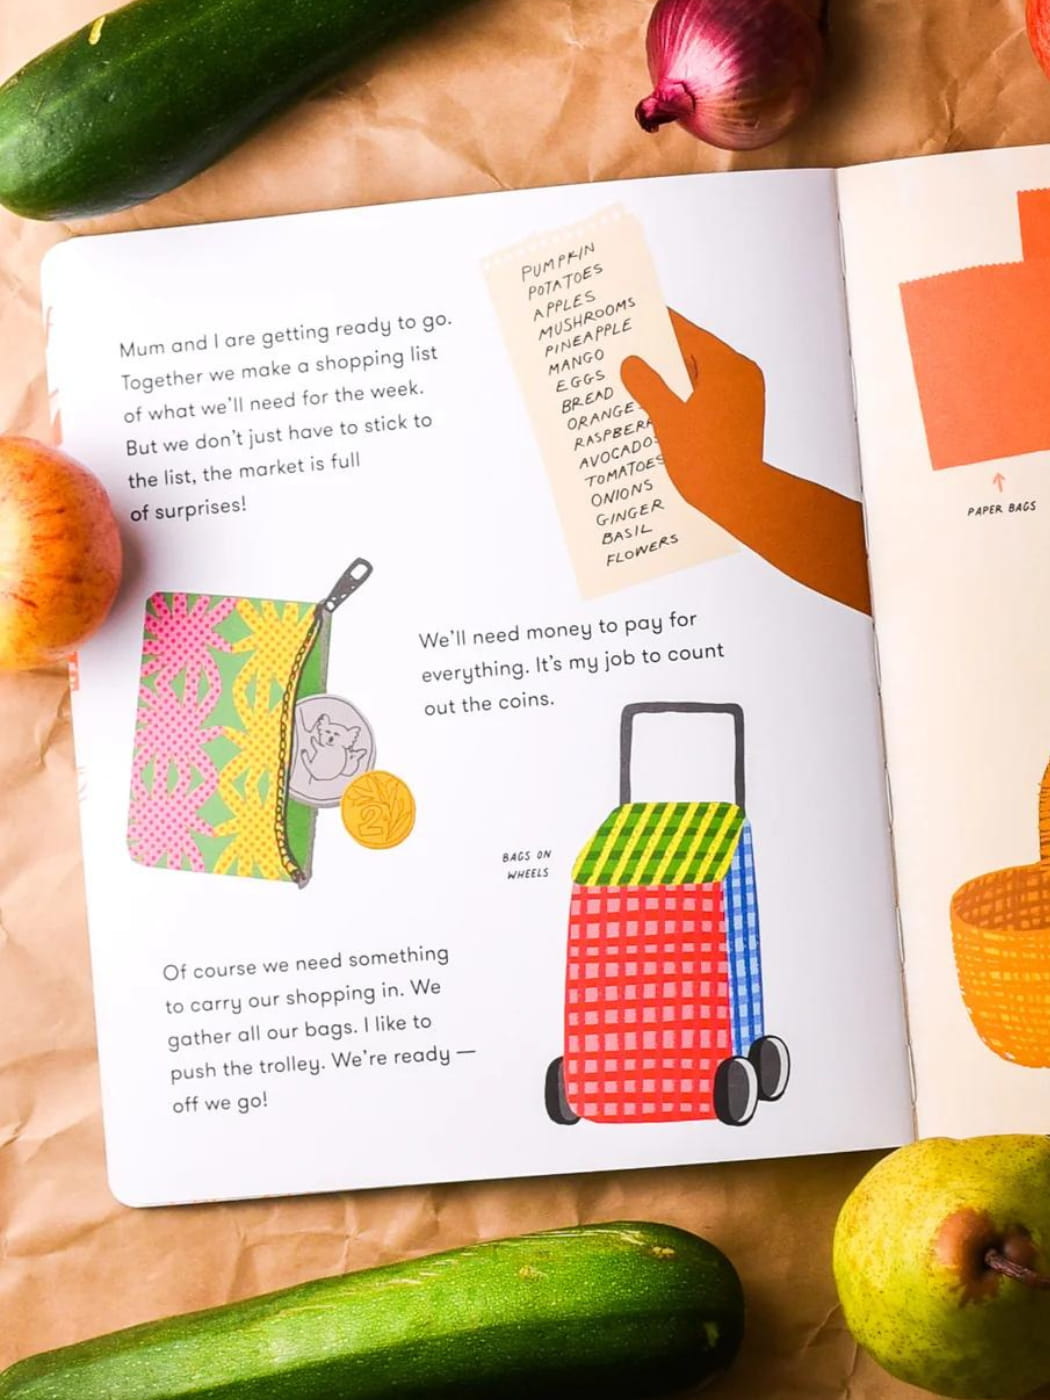 Mum and I are getting ready to go.
Together we make a shopping list
of what we'll need for the week.
But we don't just have to stick to
the list, the market is full
of surprises!
PUMPKIN
POTATOES
APPLES
MUSHROOMS
PINEAPPLE
MANGO
EGGS
BREAD
ORANGE
RASPBERR
AVOCADO
TOMATOES
ONIONS
GINGER
BASIL
FLOWERS
We'll need money to pay for
everything. It's my job to count
out the coins.
2
BAGS ON
WHEELS
Of course we need something
to carry our shopping in. We
gather all our bags. I like to
push the trolley. We're ready —
off we go!
PAPER BAGS